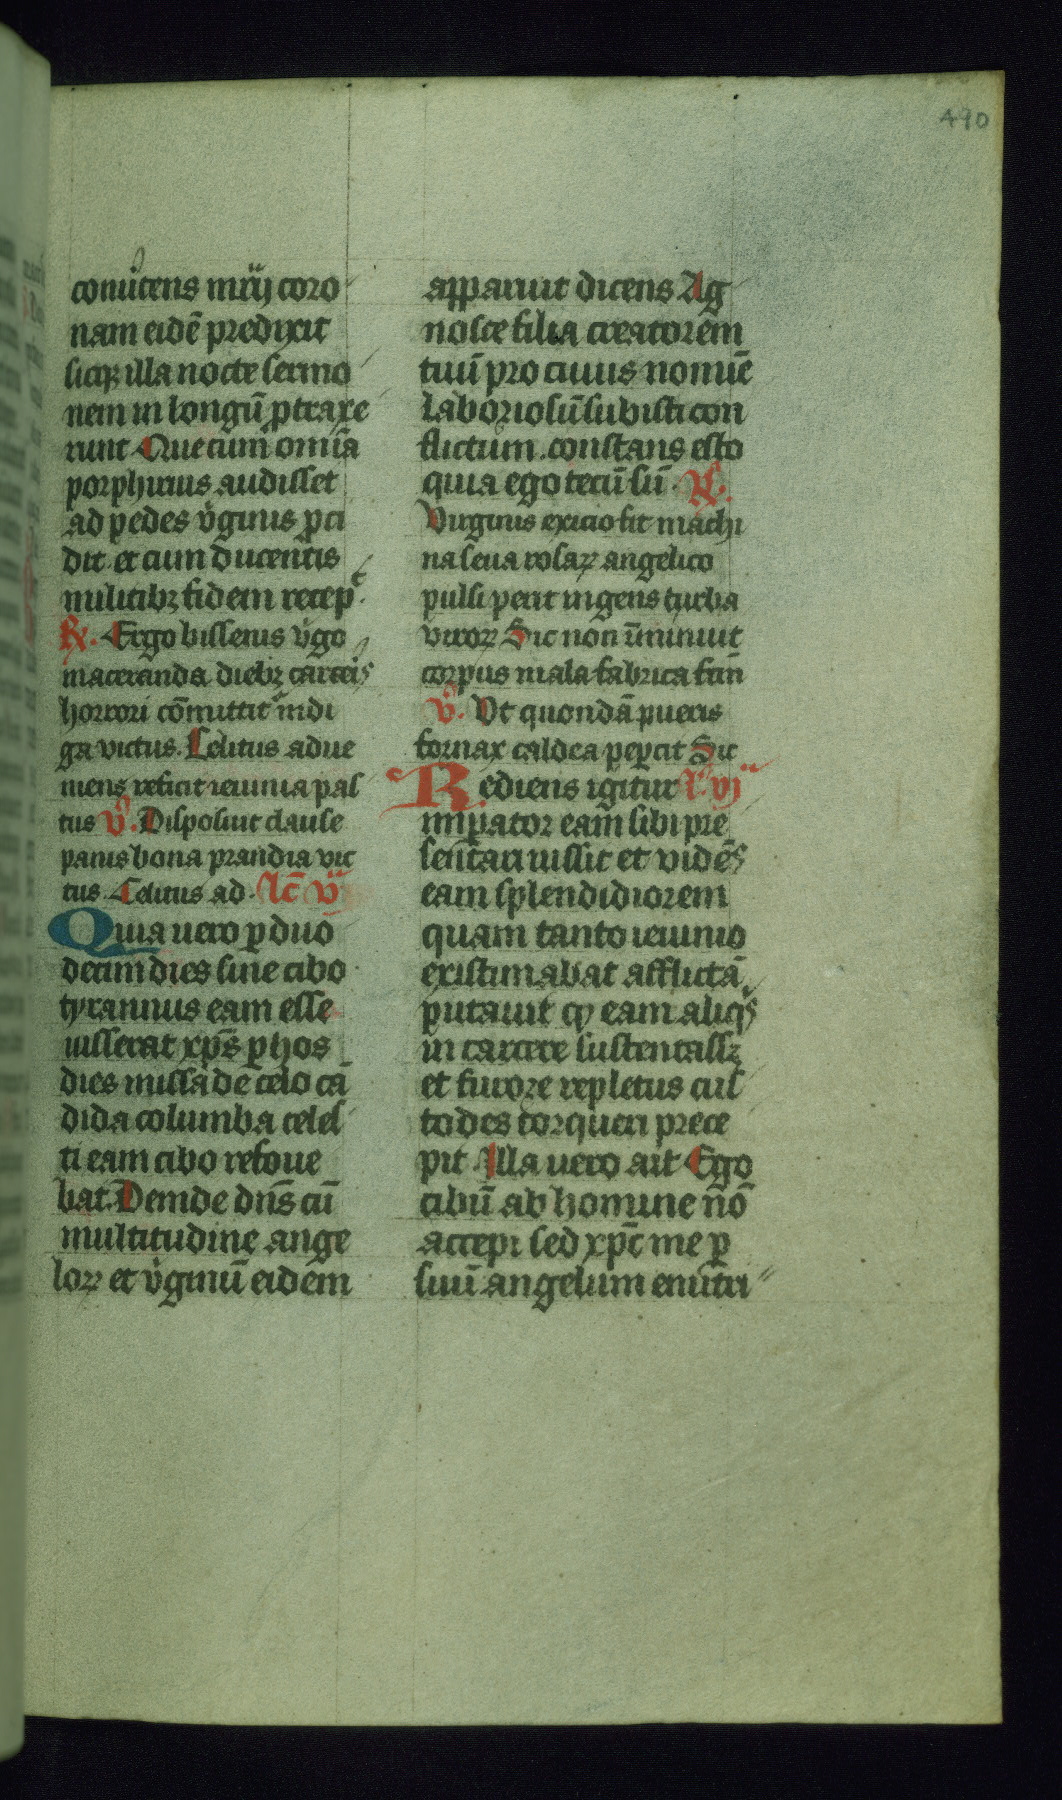 490
conũtens mr̃ij coro
nam eidē predixit
sicqꝫ illa nocte sermo
nem in longū ꝓtraxe
runt Que cum om̃ia
porphirius audisset
ad pedes v̾ginis ꝓci
dit et cum ducentis
militibꝫ fidem recepᵗ.
℟. Ergo bissenis v̾go
maceranda diebꝫ carceis
horrori cōmittitᷣ indi
ga victus. Celitus adue
niens reficit ieiunia pas
tus ℣. Disposiuit clause
panis bona prandia vic
tus. Celitus ad. lc̄ v
Quia uero ꝑ duo
decim dies sine cibo
tyrannus eam esse
iusserat xp̄s ꝑ hos
dies missa de celo cā
dida columba celes
ti eam cibo refoue
bat. Deinde dn̄s cū
multitudine ange
loꝝ et v̾ginū eidem
apparuit dicens Ag
nosce filia creatorem
tuū pro cuius nomīe
laboriosū subisti con
flictum. constans esto
quia ego tecū sū. ℟.
Virginis exicio fit machi
na seua rosaꝝ angelico
pulsu perit ingens turba
viroꝝ Sic non īminuit
corpus mala fabrica sc̄m
℣. Vt quondā pueris
fornax caldea peꝑcit Sic
Rediens igitur l̾ vj
imꝑator eam sibi pre
sentari iussit et vidēs
eam splendidiorem
quam tanto ieiunio
existimabat afflictā
putauit qꝫ eam aliqⁱs
in carcere sustentassꝫ
et furore repletus cus
todes torqueri prece
pit Illa uero ait Ego
cibū ab homine nō
accepi sed xp̄c me ꝑ
suū angelum enutri